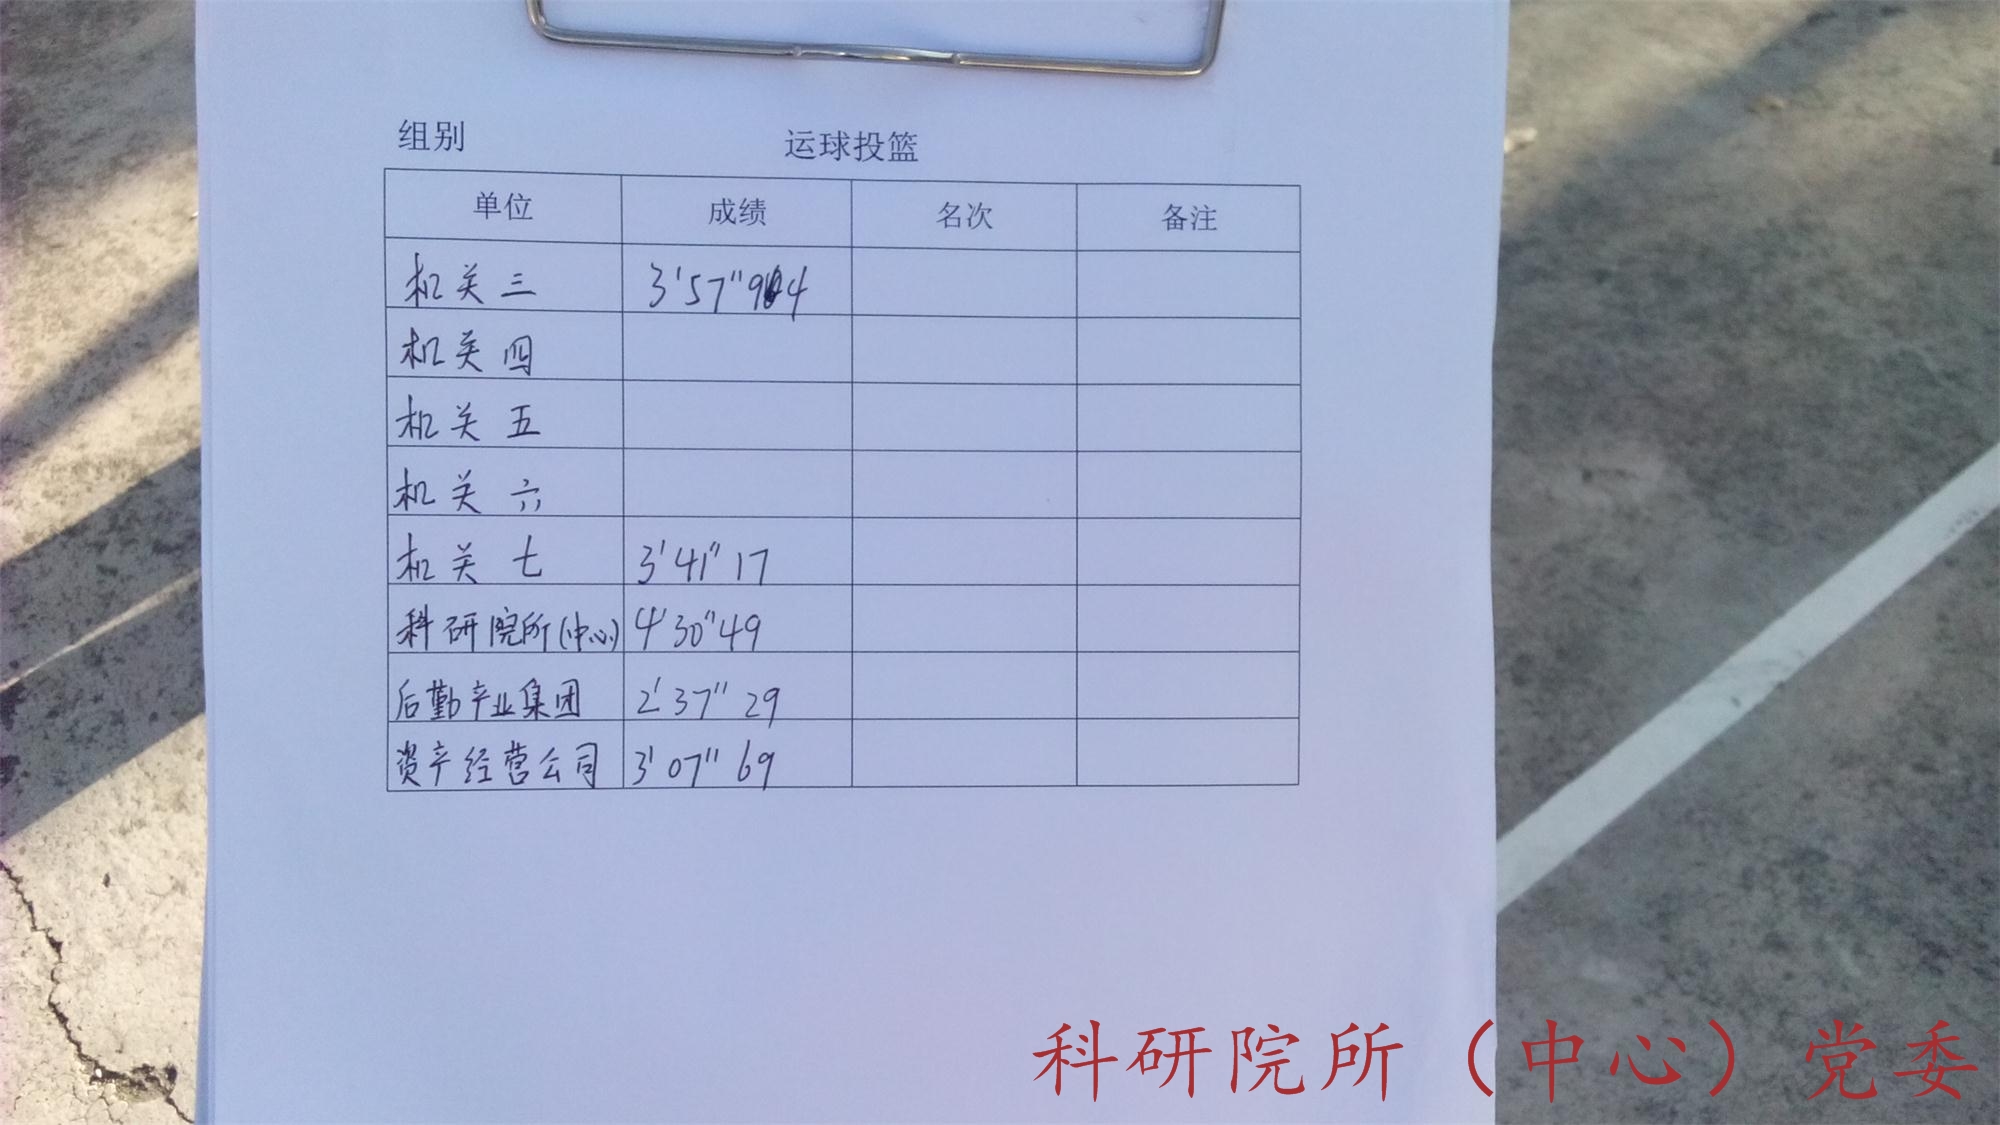 组别 运球投篮
单位 成绩 名次 备注
机关三 3'57"94
机关四
机关五
机关六
机关七 3'41"17
科研院所(中心) 4'30"49
后勤产业集团 2'37"29
资产经营公司 3'07"69
科研院所（中心）党委